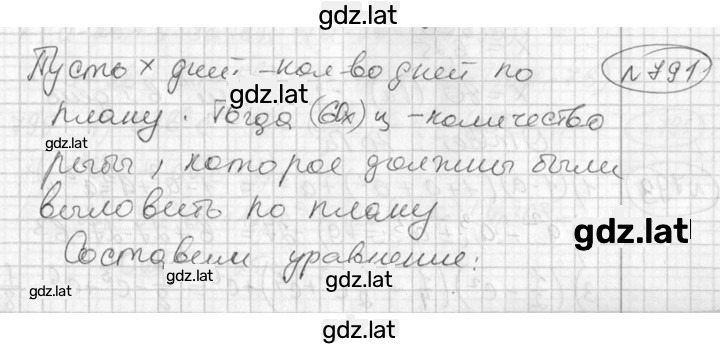 gdz.lat
Пусть x дней - кол-во дней по
№ 791
gdz.lat
плану. Тогда (x) ц - количество
gdz.lat
рыбы, которое должны были
выловить по плану
gdz.lat
Составим уравнение:
gdz.lat
gdz.lat
gdz.lat